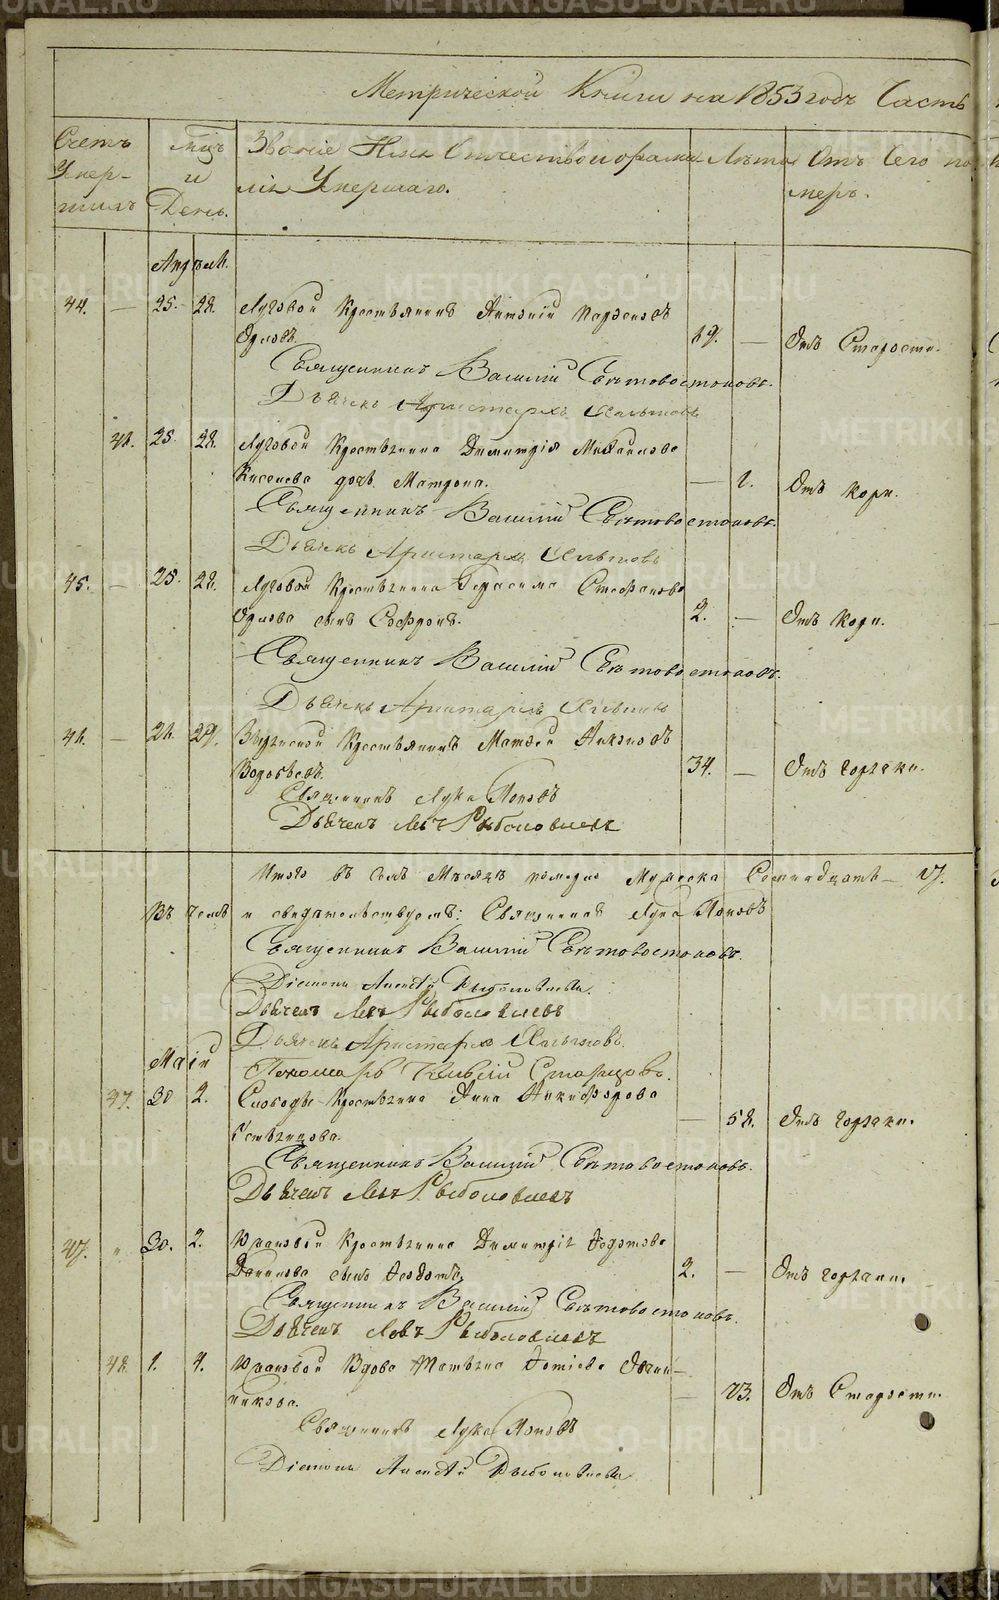 Метрической Книги на 1853 годъ Часть
Счетъ Умершихъ
Мцъ и День.
Званіе Имя Отчество и фамилія Умершаго.
Лѣта
Отъ чего померъ.
Апрѣль.
44. — 25. 28. Луговой Крестьянинъ Антоній
Орловъ. 89. — Отъ Старости.
Священникъ Василій Свѣтовостоковъ.
Дьячекъ Аристархъ
25. 28. Луговой Крестьянина Димитрія Михаилова
дочь Матрона. — 1. Отъ Кори.
Священникъ Василій Свѣтовостоковъ.
Дьячекъ Аристархъ
45. — 25. 28. Луговой Крестьянина Герасима Стефанова
Орлова сынъ Софронъ. 2. — Отъ Кори.
Священникъ Василій Свѣтовостоковъ.
Дьячекъ Аристархъ
46. — 26. 29. Крестьянинъ Матвей
Воробьевъ. 34. — Отъ горячки.
Священникъ Лука Поповъ
Дьячекъ Левъ Рыболовлевъ
Итого въ семъ Мѣсяцѣ померло Мужеска Семнадцать — 17.
Въ чемъ и свидѣтельствуемъ: Священникъ Лука Поповъ
Священникъ Василій Свѣтовостоковъ.
Діаконъ Алексѣй Рыболовлевъ.
Дьячекъ Левъ Рыболовлевъ
Дьячекъ Аристархъ
Пономарь Старцовъ.
Маій
47. 30 2. Слободы Крестьянка Анна Никифорова
Устьянцова. — 58. Отъ горячки.
Священникъ Василій Свѣтовостоковъ.
Дьячекъ Левъ Рыболовлевъ
47. " 30. 2. Крестьянина Димитрія Федотова
сынъ Феодотъ. 2. — Отъ горячки.
Священникъ Василій Свѣтовостоковъ.
Дьячекъ Левъ Рыболовлевъ
48. 1. 4. Вдова Фотіева Овчин-
никова. — 73. Отъ Старости.
Священникъ Лука Поповъ
Діаконъ Алексѣй Рыболовлевъ
METRIKI.GASO-URAL.RU